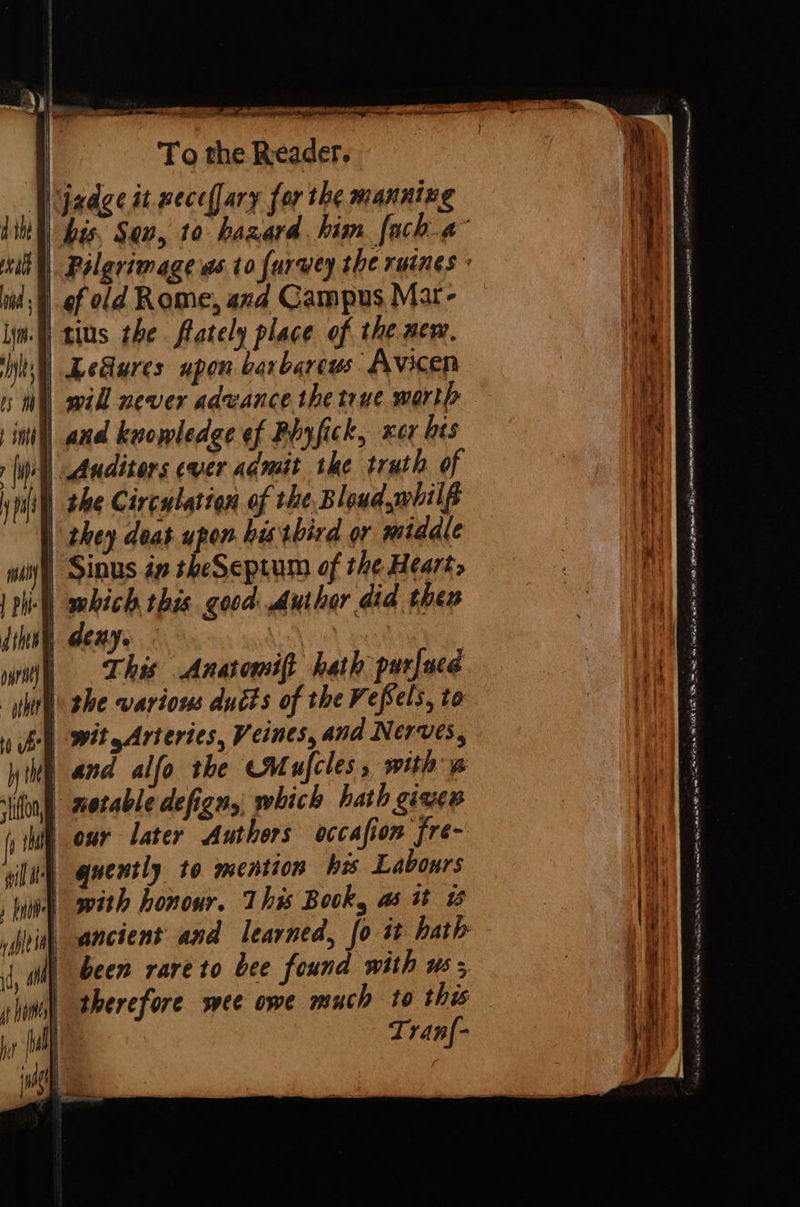 To the Reader.
judge it necessary for the manning
his Son, to hazard him such a
Pilgrimage as to survey the ruines
of old Rome, and Campus Mar-
tius the stately place of the new.
Lectures upon barbarous Avicen
will never advance the true worth
and knowledge of Physick, nor his
Auditors ever admit the truth of
the Circulation of the Bloud, whilst
they doat upon his third or middle
Sinus in the Septum of the Heart,
which this good Author did then
deny.
This Anatomist hath pursued
the various ducts of the Vessels, to
wit, Arteries, Veines, and Nerves,
and also the Muscles, with a
notable design, which hath given
our later Authors occasion fre-
quently to mention his Labours
with honour. This Book, as it is
ancient and learned, so it hath
been rare to bee found with us;
therefore wee owe much to this
Trans-